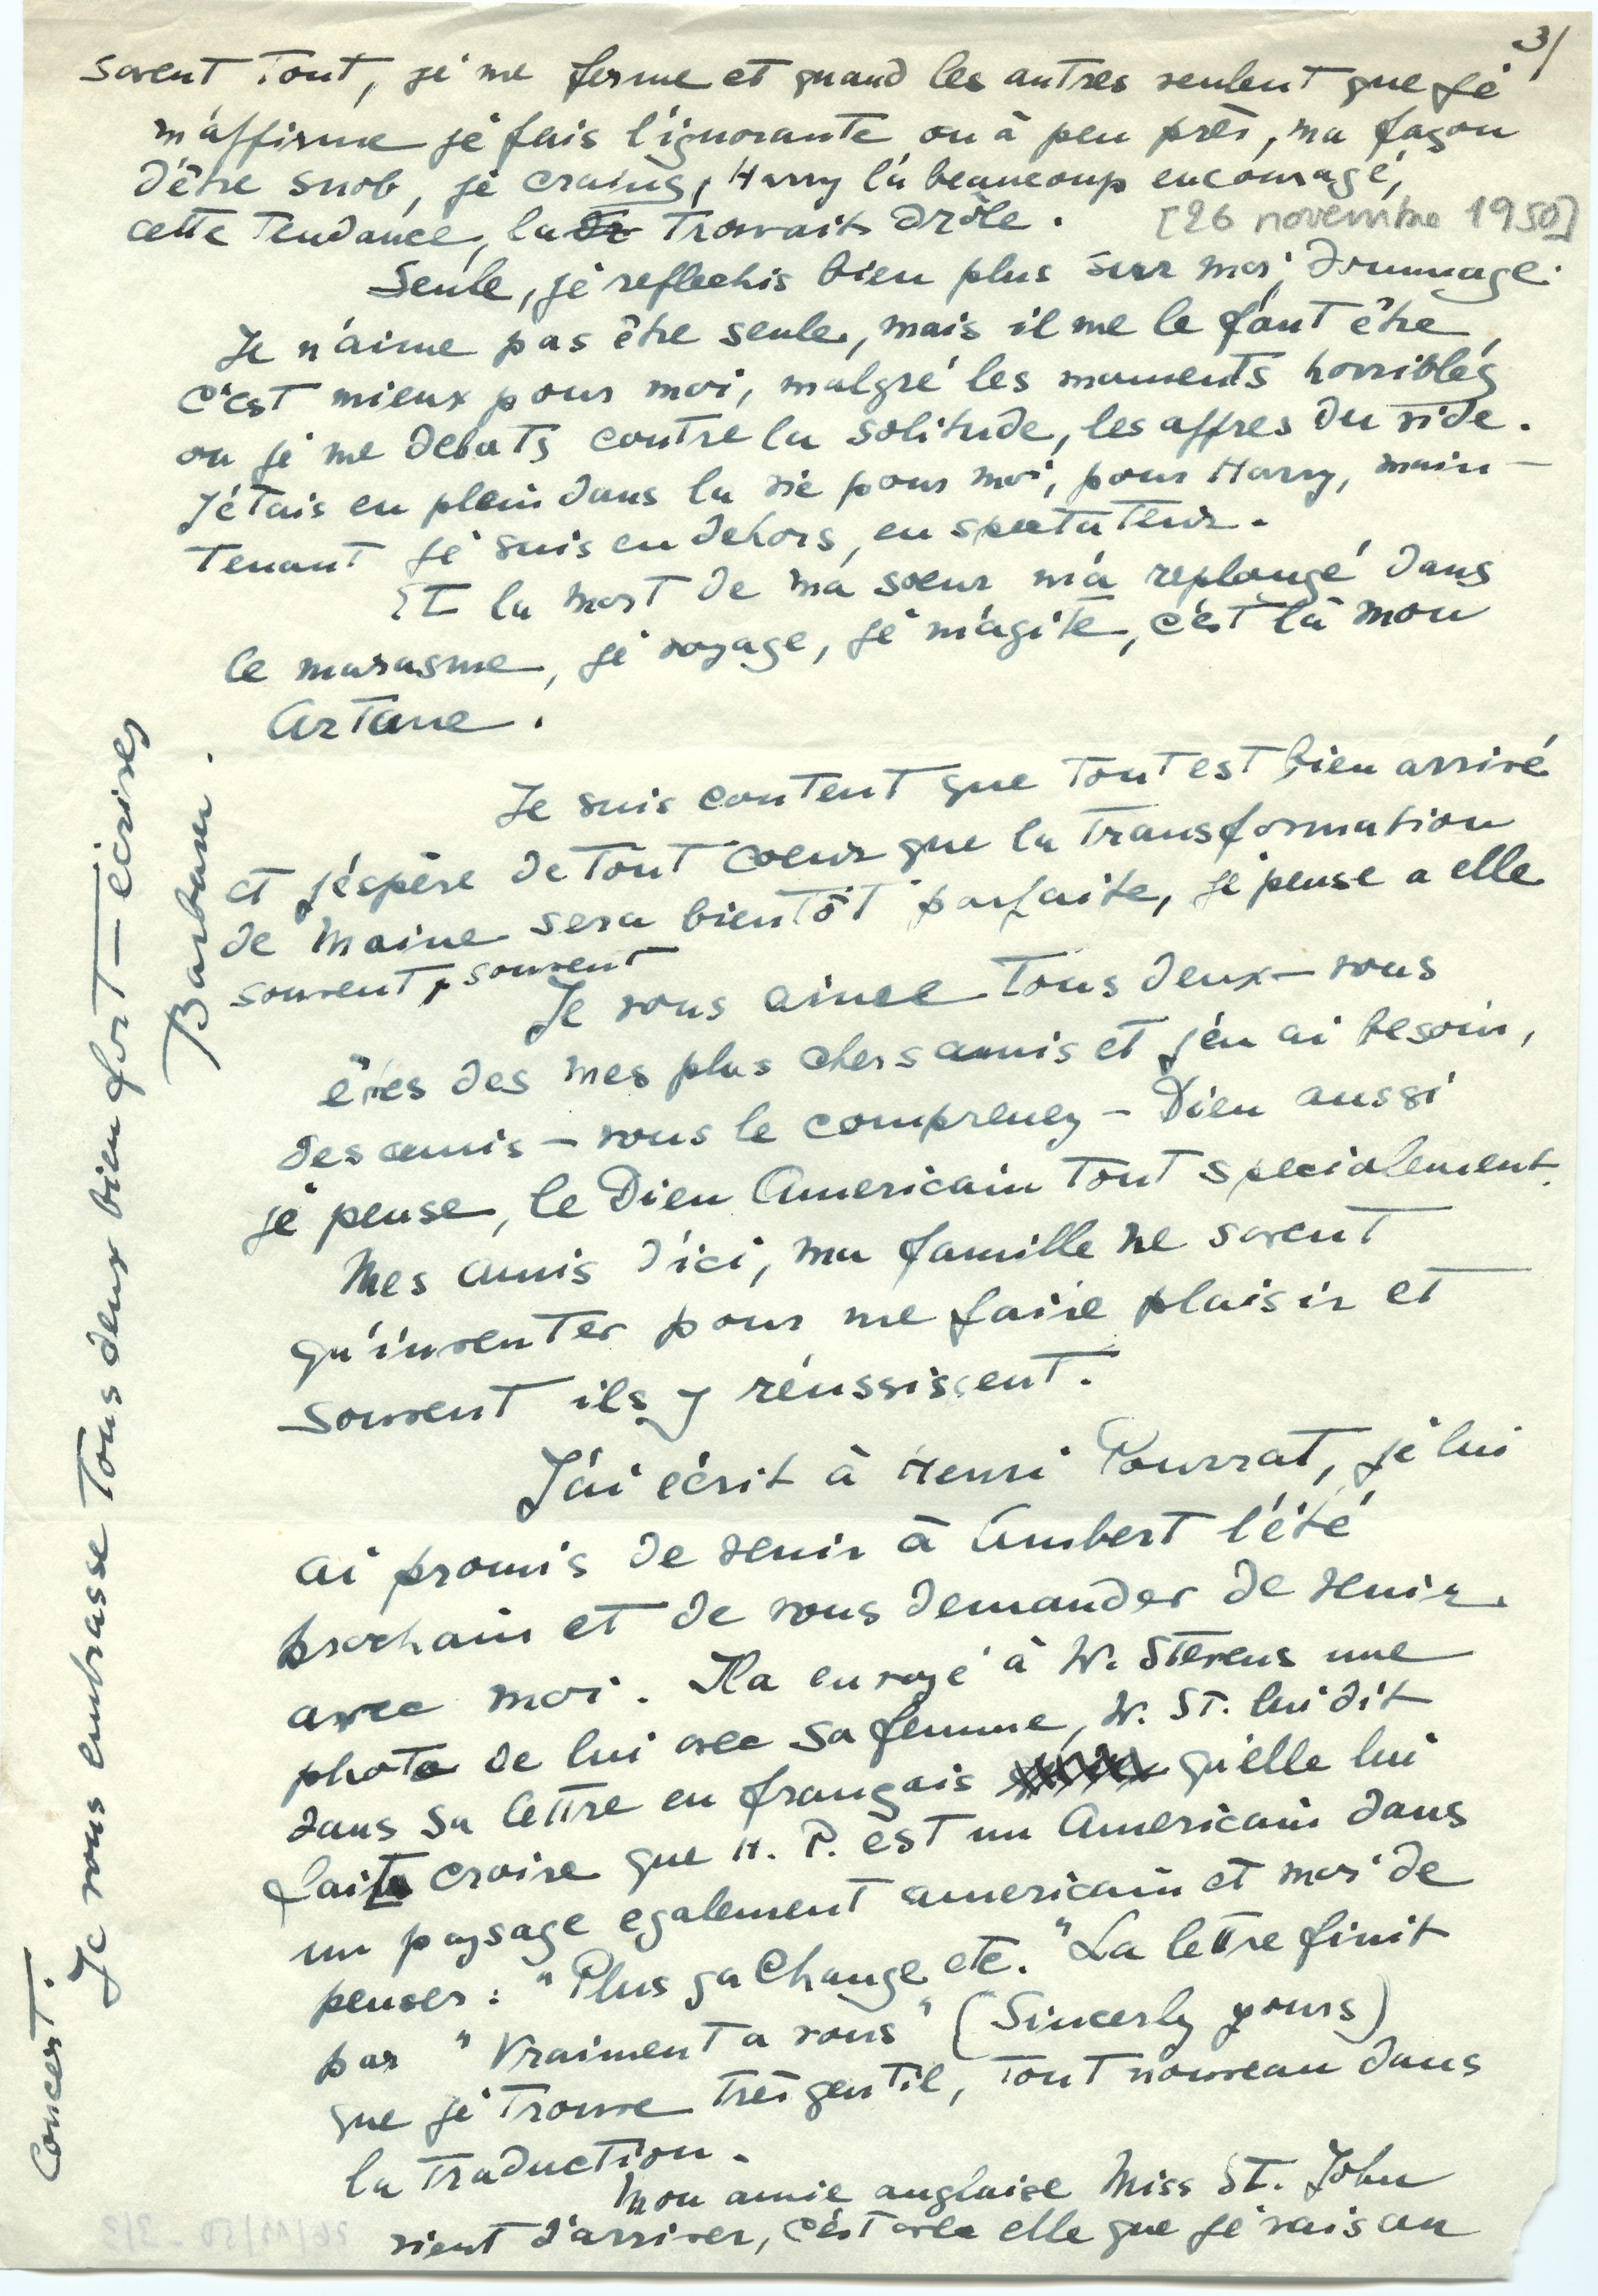 3/
savent tout, je me ferme et quand les autres veulent que je
m'affirme je fais l'ignorante ou à peu près, ma façon
d'être snob, je crains, Harry l'a beaucoup encouragé,
cette tendance, la trouvait drôle.
[26 novembre 1950]
Seule, je reflechis bien plus sur moi, dommage.
Je n'aime pas être seule, mais il me le faut être,
c'est mieux pour moi, malgré les moments horribles
ou je me debats contre la solitude, les affres du vide.
J'étais en plein dans la vie pour moi, pour Harry, main-
tenant je suis en dehors, en spectateur.
Et la mort de ma soeur m'a replongé dans
le marasme, je voyage, je m'agite, c'est là mon
Artane.
Je suis content que tout est bien arrivé
et j'éspère de tout coeur que la transformation
de Maine sera bientôt parfaite, je pense a elle
souvent, souvent
Je vous aime tous deux - vous
êtes des mes plus chers amis et j'en ai besoin,
des amis - vous le comprenez - Dieu aussi
je pense, le Dieu Americain tout specialement.
Mes amis d'ici, ma famille ne savent
qu'inventer pour me faire plaisir et
souvent ils y réussissent.
J'ai écrit à Henri Pourrat, je lui
ai promis de venir à Ambert l'été
prochain et de vous demander de venir
avec moi. Il a envoyé à W. Stevens une
photo de lui avec sa femme, W. St. lui dit
dans sa lettre en français qu'elle lui
fait croire que H. P. est un Americain dans
un paysage egalement americain et moi de
penser : "Plus ça change etc." La lettre finit
par "Vraiment a vous" (Sincerly yours)
que je trouve très gentil, tout nouveau dans
la traduction.
Mon amie anglaise Miss St. John
vient d'arriver, c'est avec elle que je vais au
concert.
Je vous embrasse tous deux bien fort - écrivez
Barbara.
26/11/50 - 3/3